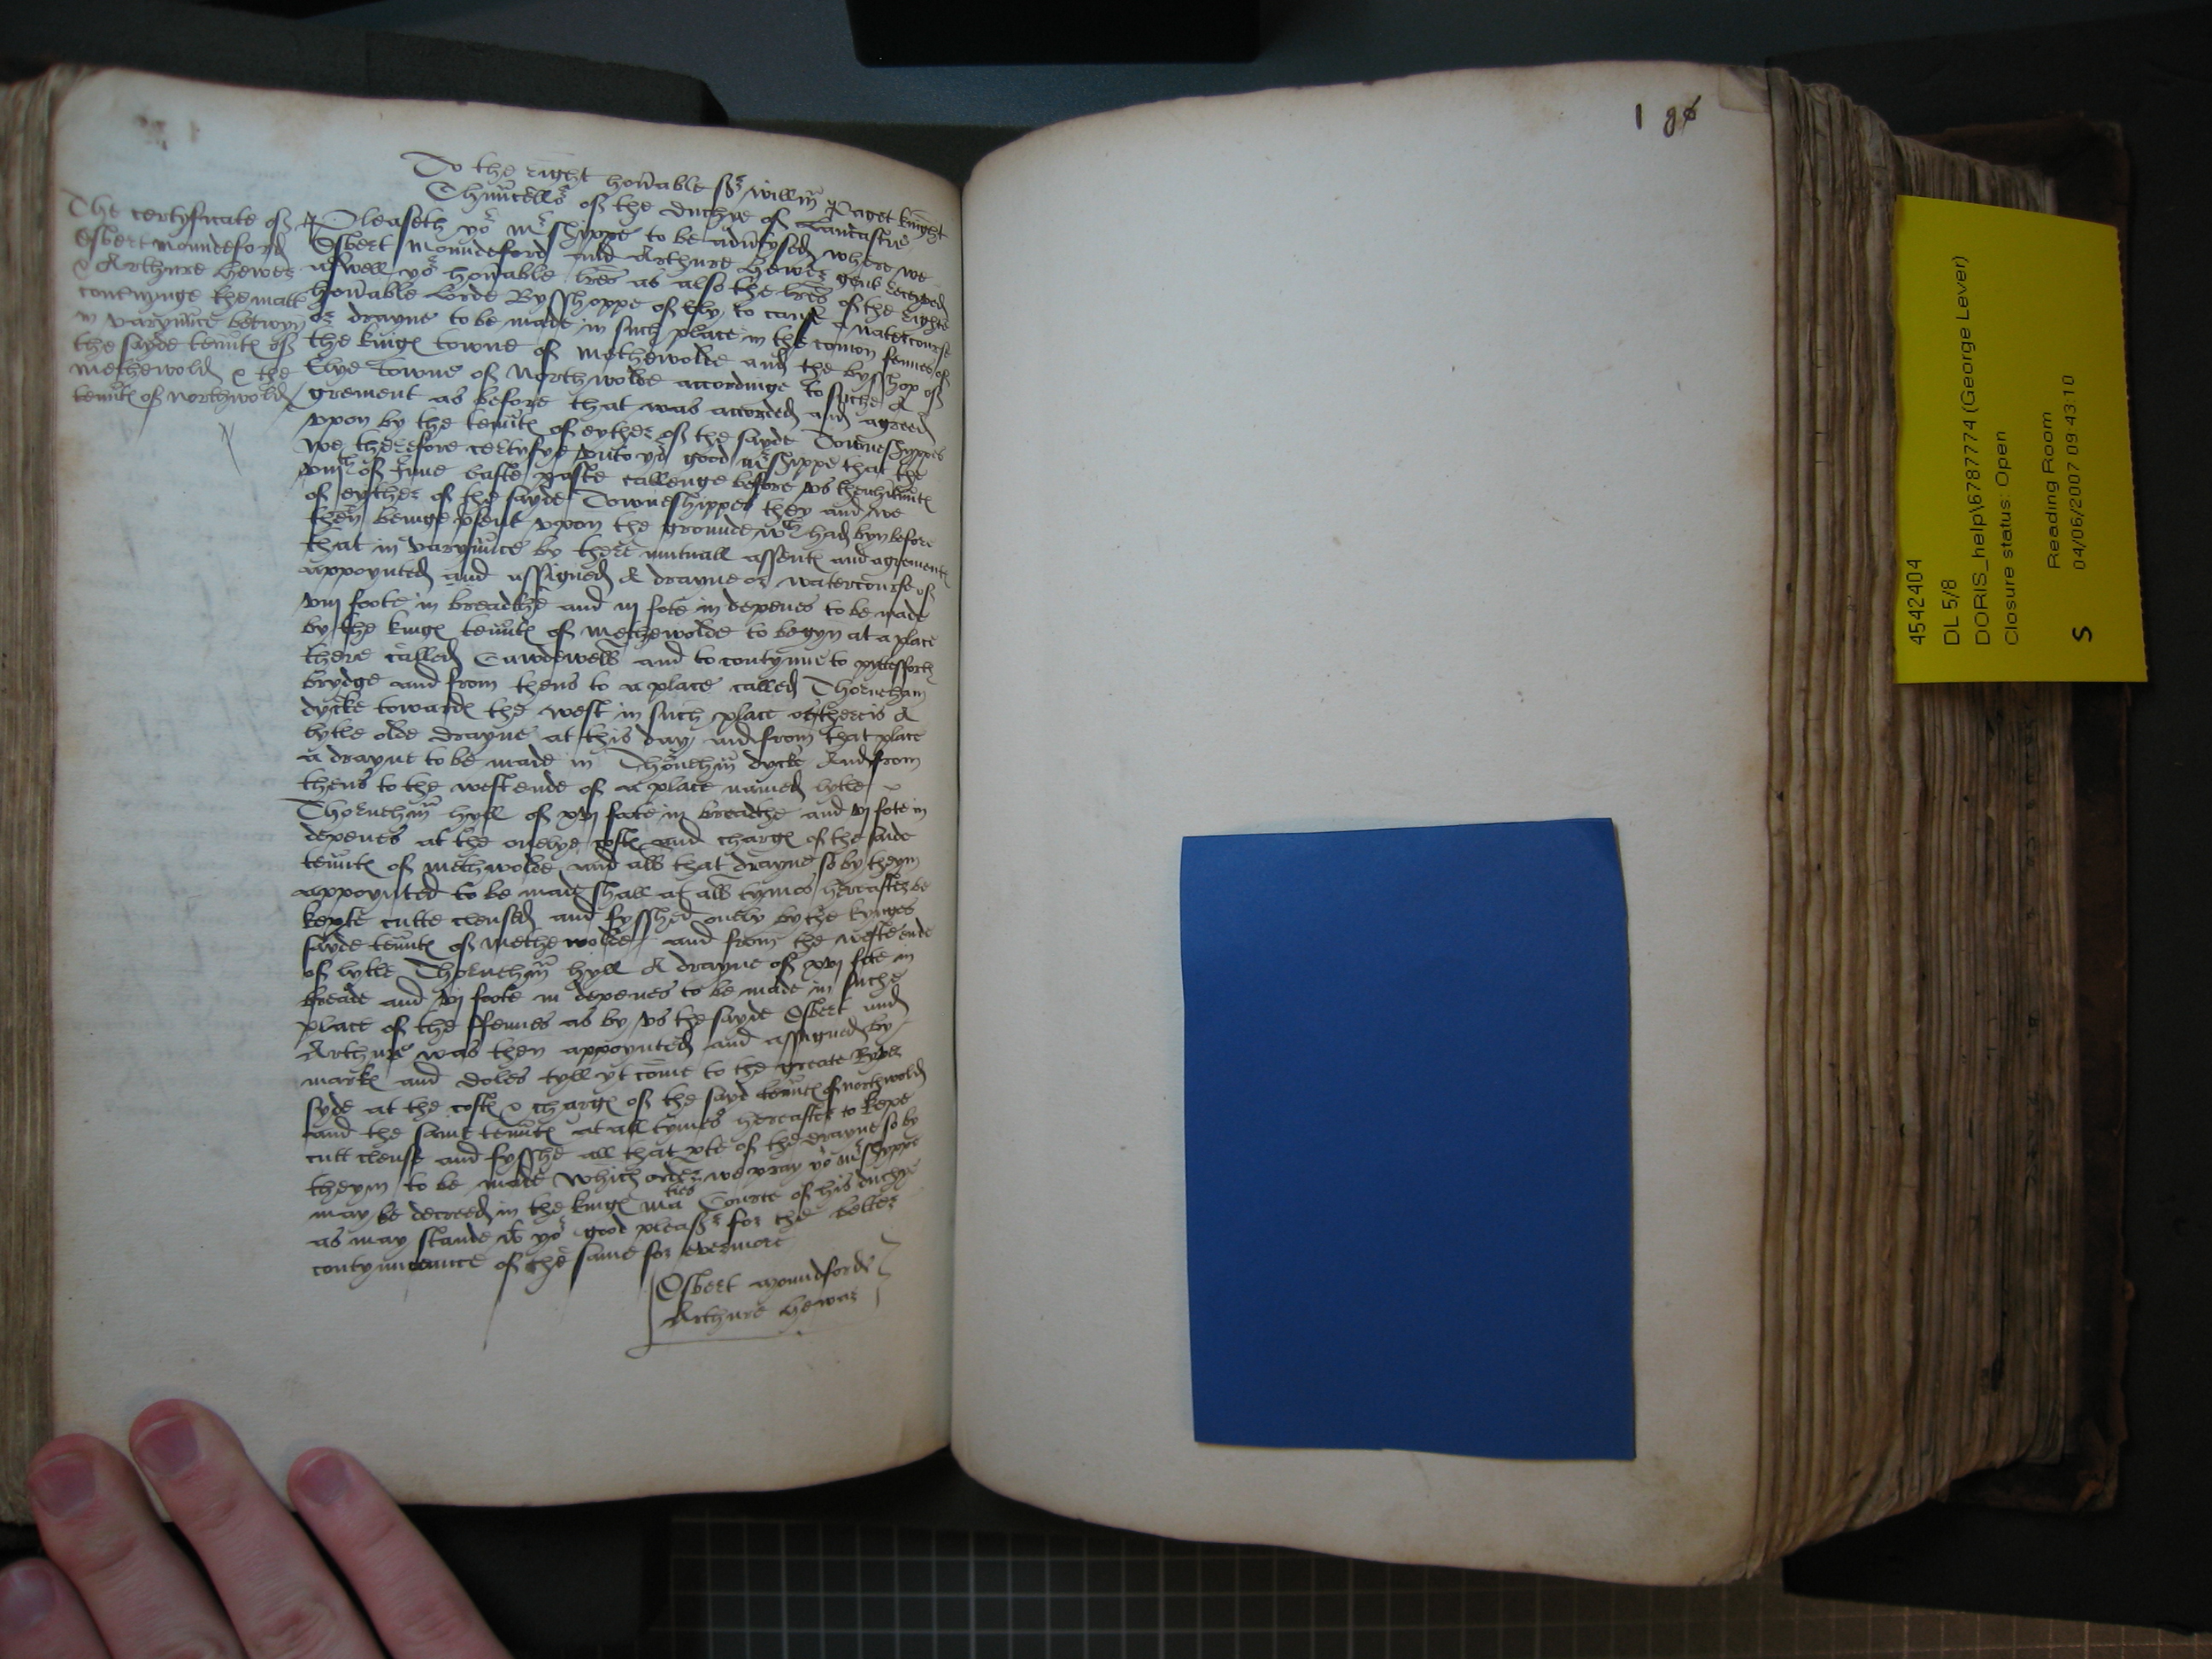 To the right hon̄able Sr willm̄ Paget knight
Chaūcellor of the duchye of Lancastre
The certyficate of
Osbert moundeford
& Arthure Hewer
conc'nynge the matt'
in varyaūce betwyn
the sayde tenūt℮ of
methewold & the
tenūt℮ of northwold
Pleaseth yor mr shyppe to be adv'tysed where we
Osbert moundeford and Arthure Hewer gent receyved
aswell yor hon̄able lr̄es as also the lr̄es of the right
hon̄able Lorde Bysshoppe of Ely to cause a watercourse
or drayne to be made in such place in the com̄on fennes of
the king℮ towne of methewolde and the bysshop of
Elye towne of Northwolde accordinge to suche A
grement as before that was accorded and agreed
vpon by the tenūt℮ of eyther of the sayde Towneshyppes
we therefore certyfye vnto yor good mr shyppe that the
viijth of June laste paste callenge before vs the tenūt℮
of eyther of the sayde Towneshippes they and we
then beinge p'sent vpon the grounde wch had byn before
that in varyaūce by there mutuall assent℮ and agrement℮
appoynted and assigned A drayne or watercourse of
viij foote in breadthe and iij fote in depenes to be made
by the king℮ tenūt℮ of methewolde to begyn at a place
there called and to contynue to
brydge and from thens to a place called Thorneham
dycke toward℮ the west in such place as there is A
lytle olde drayne at this day and from that place
a drayne to be made in Thornehm̄ dycke And from
thens to the west ende of a place named lytle
Thornehm̄ hyll of xvj foote in breadthe and vj fote in
depenes at the onelye cost℮ and charg℮ of the saide
tenūt℮ of methwolde and all that drayne so by theym
appoynted to be made shall at all tymes hereafter be
kepte cutte clensed and fysshed onely by the kynges
sayde tenūt℮ of methewolde and from the weste ende
of lytle Thornehm̄ hyll A drayne of xvj fote in
breade and vj foote in depenes to be made in suche
place of the ffennes as by vs the sayde Osbert and
Arthure was then appoynted and assigned by
mark℮ and doles tyll yt com̄e to the greate Ryver
syde at the cost℮ & charg℮ of the sayd tenūt℮ of northwold
and the same tenūt℮ at all tymes hereafter to kepe
cutt clense and fysshe all that p'te of the drayne so by
theym to be made which order we pray yor mr shyppe
may be decreed in the king℮ maties Courte of his duchye
as may stande wt yor good pleasr for the better
contynuaunce of the same for evermore
Osbert moundforde
Arthure Hewer
1 9
4542404
DL 5/8
DORIS_help\6787774 (George Lever)
Closure status: Open
Reading Room
S 04/06/2007 09:43:10